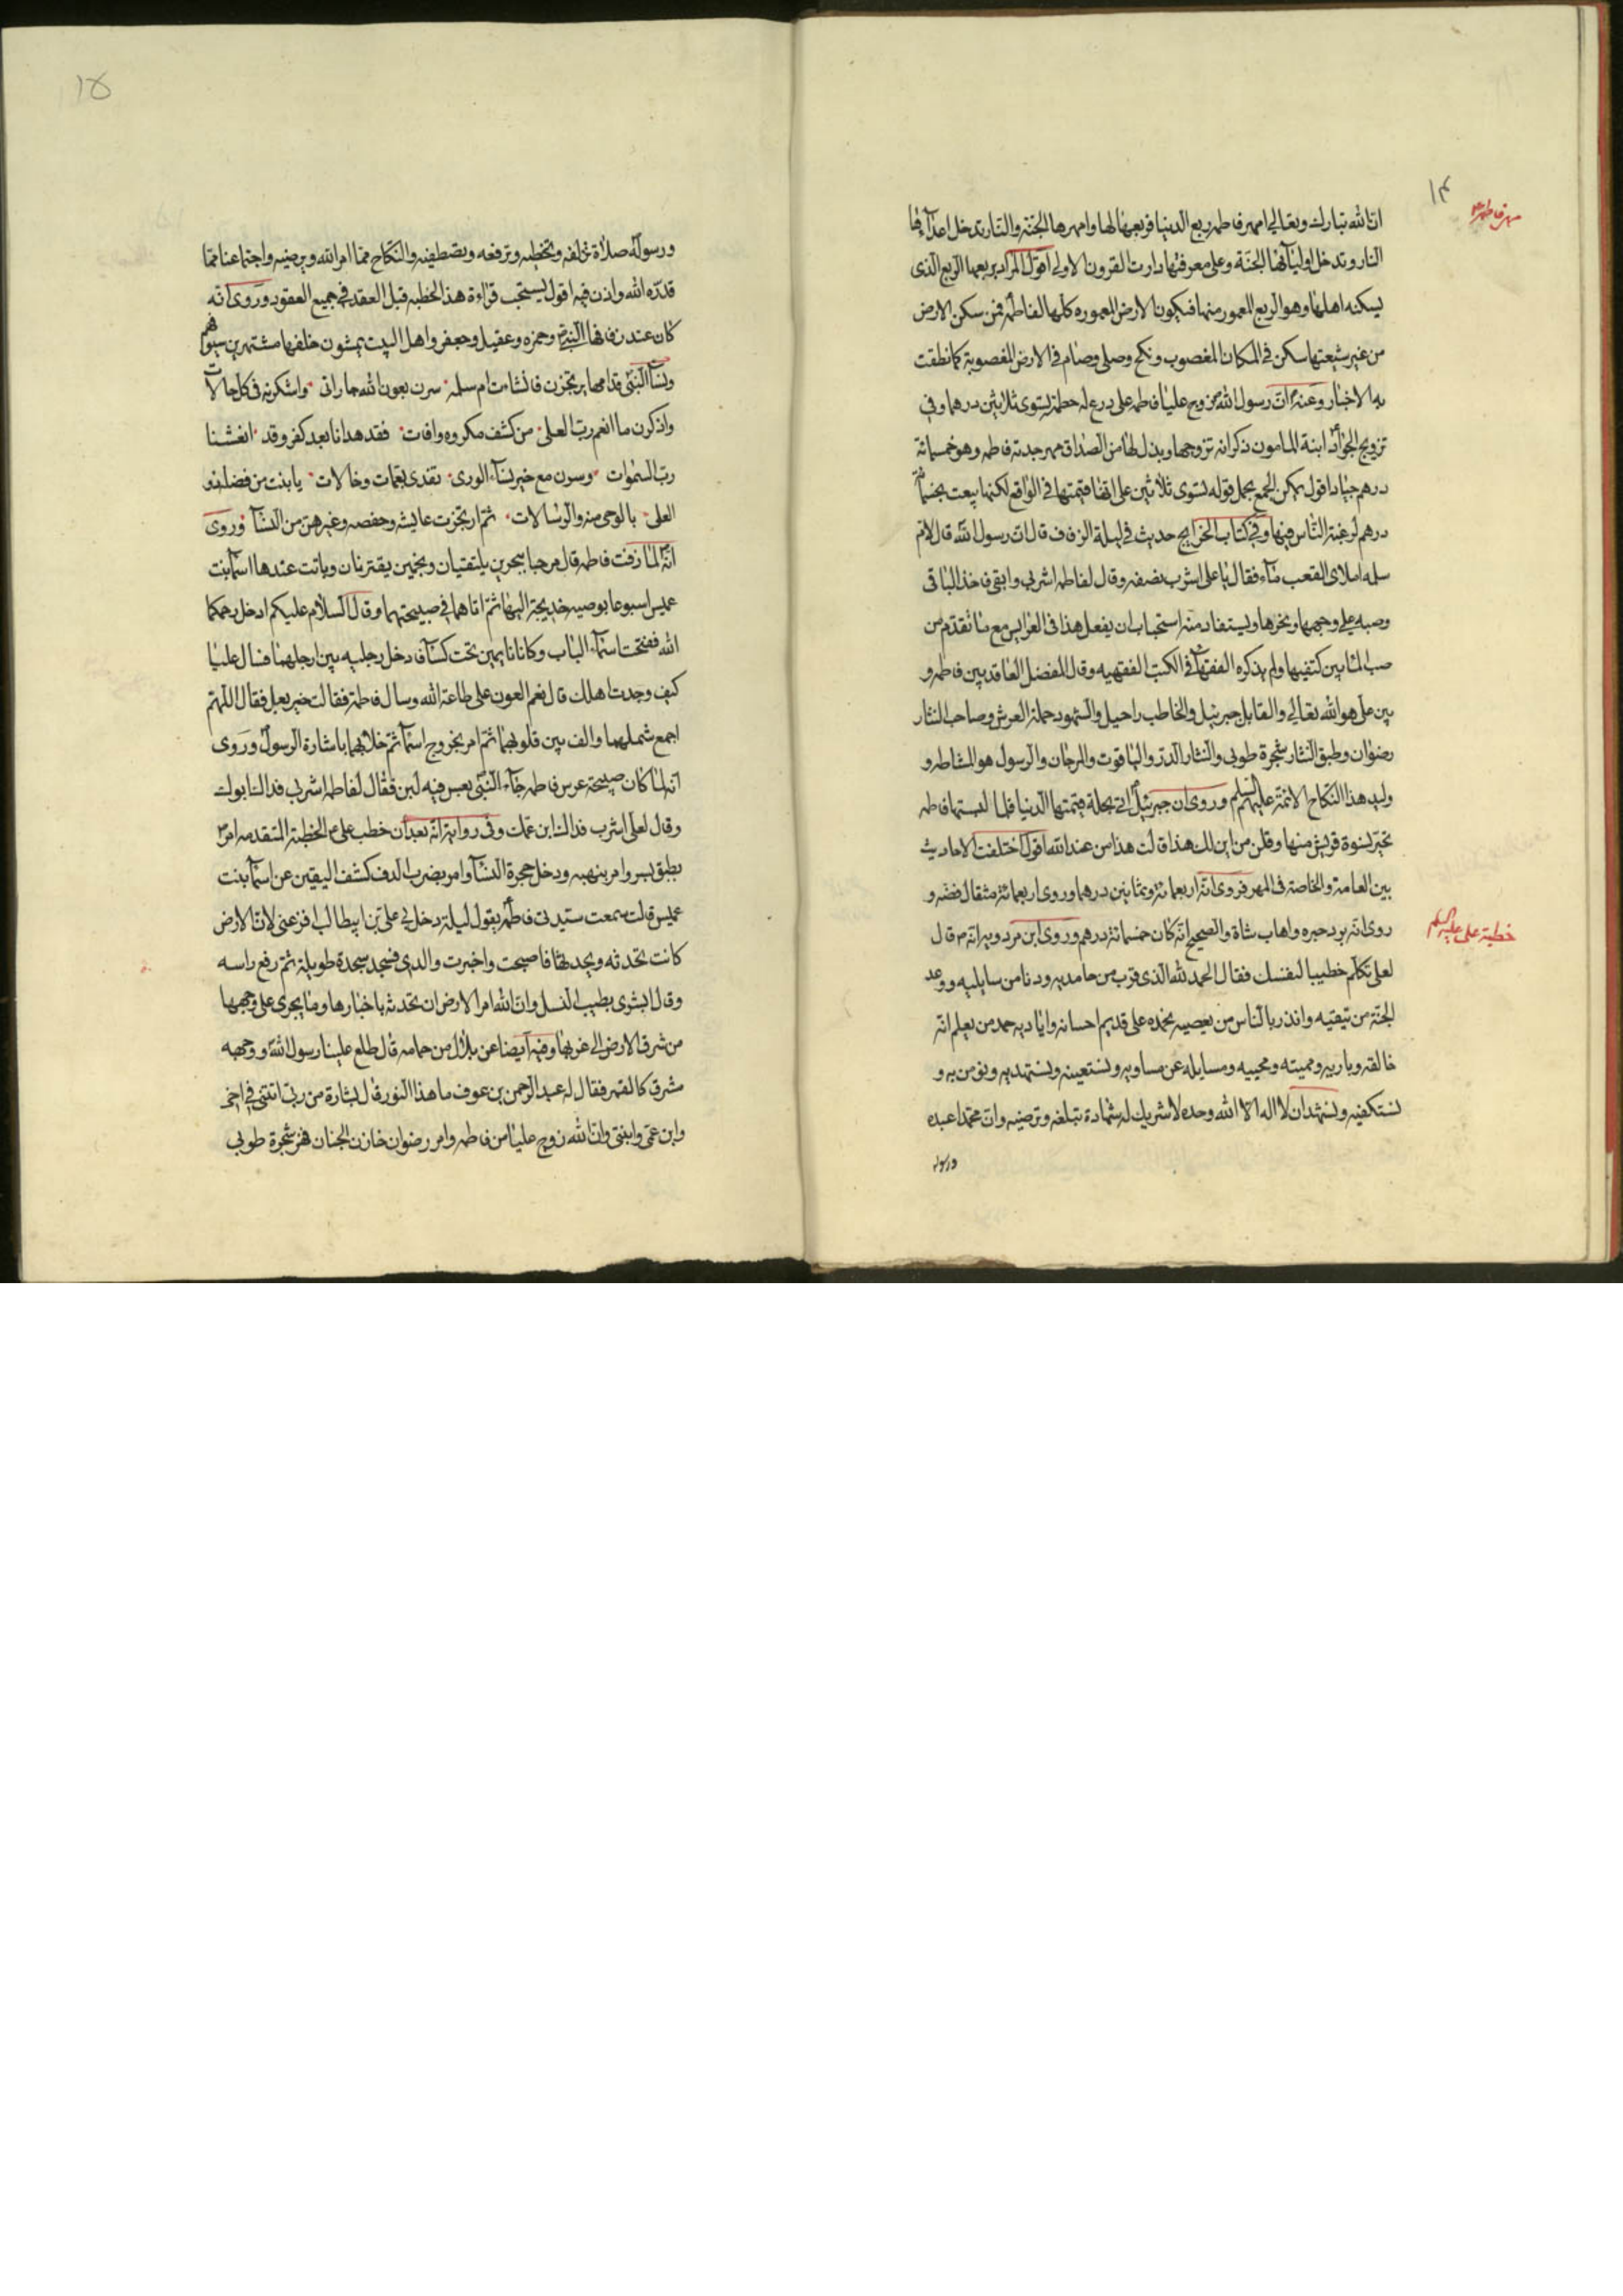 ١٤
مهر فاطمة ع
ان الله تبارك وتعالى امهر فاطمه ربع الدنيا فربعها لها وامهرها الجنة والنار تدخل اعدآءها
النار وتدخل اوليآئها الجنة وعلى معرفتها دارت القرون الاولى اقول المراد بربعها الربع الذى
يسكنه اهلها وهو الربع المعمور منها فيكون الارض المعموره كلها لفاطمة فمن سكن الارض
من غير شيعتها سكن فى المكان المغصوب ونكح وصلى وصام فى الارض المغصوبة كما نطقت
به الاخبار وعنه ان رسول الله زوج عليا فاطمه على درع له حطمة يسوى ثلاثين درهما وفي
تزويج الجواد ابنة المامون ذكر انه تزوجها وبذل لها من الصداق مهر جدته فاطمه وهو خمسمائة
درهم جيادا اقول يمكن الجمع بحمل قوله تسوى ثلاثين على انها قيمتها فى الواقع لكنها بيعت بخمسمائة
درهم لرغبة الناس فيها وفي كتاب الخرايج حديث في ليلة الزفاف قال ان رسول الله قال لام
سلمه املاى القعب مآء فقال يا على اشرب نصفه وقال لفاطمه اشربى وابقى فاخذ الباقى
وصبه على وجهها ونحرها ويستفاد منه استحباب ان يفعل هذا فى العرايس مع ما تقدم من
صب المآ بين كتفيها ولم يذكره الفقهآ فى الكتب الفقهيه وقال المفضل العاقد بين فاطمه و
بين على هو الله تعالى والقابل جبرئيل والخاطب راحيل والشهود حملة العرش وصاحب النثار
رضوان وطبق النثار شجرة طوبى والنثار الدر والياقوت والمرجان والرسول هو المشاطه و
وليد هذا النكاح الائمة عليهم السلم وروى ان جبرئيل اتى بحلة قيمتها الدنيا فلما لبستها فاطمه
تحير نسوة قريش منها وقلن من اين لك هذا قالت هذا من عند الله اقول اختلفت الاحاديث
بين العامة والخاصة فى المهر فروى انه اربعمائة وثمانين درهما وروى اربعمائة مثقال فضه و
روى انه برد حبره واهاب شاة والصحيح انه كان خمسمائة درهم وروى ابن مردويه انه ص قال
خطبة على عليه السلم
لعلى تكلم خطيبا لنفسك فقال الحمد لله الذى قرب من حامديه ودنا من سايليه ووعد
الجنة من يتقيه وانذر بالناس من يعصيه نحمده على قديم احسانه واياديه حمد من يعلم انه
خالقه وباريه ومميته ومحييه ومسايله عن مساويه ونستعينه ونستهديه ونؤمن به و
نستكفيه ونشهد ان لا اله الا الله وحده لا شريك له شهادة تبلغه وترضيه وان محمدا عبده
ورسوله
١٥
ورسوله صلاة تزلفه وتحظيه وترفعه وتصطفيه والنكاح مما امر الله ويرضيه واجتماعنا مما
قدره الله واذن فيه اقول يستحب قراءة هذا الخطبه قبل العقد فى جميع العقود وروى انه
كان عند زفافها النبى ص وحمزه وعقيل وجعفر واهل البيت يمشون خلفها مشتهرين سيوفهم
ونسآ النبى قدامها يرتجزن فانشات ام سلمه سرن بعون الله جاراتى واشكرنه فى كل حالات
واذكرن ما انعم رب العلى من كشف مكروه وافات فقد هدانا بعد كفر وقد انعشنا
رب السموات وسرن مع خير نسآء الورى تفدى بعمات وخالات يا بنت من فضله ذو
العلى بالوحى منه والرسالات ثم ارتجزت عايشه وحفصه وغيرهن من النسآ وروى
انه لما زفت فاطمه قال مرحبا ببحرين يلتقيان ونجمين يقترنان وباتت عندها اسمآ بنت
عميس اسبوعا بوصيه خديجة اليها ثم اتاهما فى صبيحتهما وقال السلام عليكم ادخل رحمكما
الله ففتحت اسمآء الباب وكانا نايمين تحت كسآء فادخل رجليه بين ارجلهما فسال عليا
كيف وجدت اهلك قال نعم العون على طاعة الله وسال فاطمة فقالت خير بعل فقال اللهم
اجمع شملهما والف بين قلوبهما ثم امر بخروج اسمآ ثم خلا بهما باشارة الرسول وروى
انه لما كان صبيحة عرس فاطمه جآء النبى بعس فيه لبن فقال لفاطمه اشربى فداك ابوك
وقال لعلى اشرب فداك ابن عمك وفى رواية انه بعد ان خطب على ع الخطبة المتقدمه امر
بطبق بسر وامر بنهبه ودخل حجرة النسآ وامر بضرب الدف كشف اليقين عن اسمآ بنت
عميس قالت سمعت سيدتى فاطمة يقول ليلة دخل بى على بن ابيطالب افزعنى لان الارض
كانت تحدثه ويحدثها فاصبحت واخبرت والدى فسجد سجدة طويلة ثم رفع راسه
وقال ابشرى بطيب النسل وان الله امر الارض ان تحدثه باخبارها وما يجرى على وجهها
من شرق الارض الى غربها وفيه ايضا عن بلال بن حمامه قال طلع علينا رسول الله ووجهه
مشرق كالقمر فقال له عبد الرحمن بن عوف ما هذا النور قال بشارة من ربى اتتنى فى اخى
وابن عمى وابنتى وان الله زوج عليا من فاطمه وامر رضوان خازن الجنان فهز شجرة طوبى